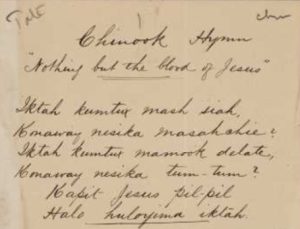 Chinook Hymn
"Nothing but the blood of Jesus"
Iktah kumtux mash siah,
Konaway nesika masahchie?
Iktah kumtux mamook delate,
Konaway nesika tum-tum?
Kapit Jesus pil-pil
Halo huloyima iktah.